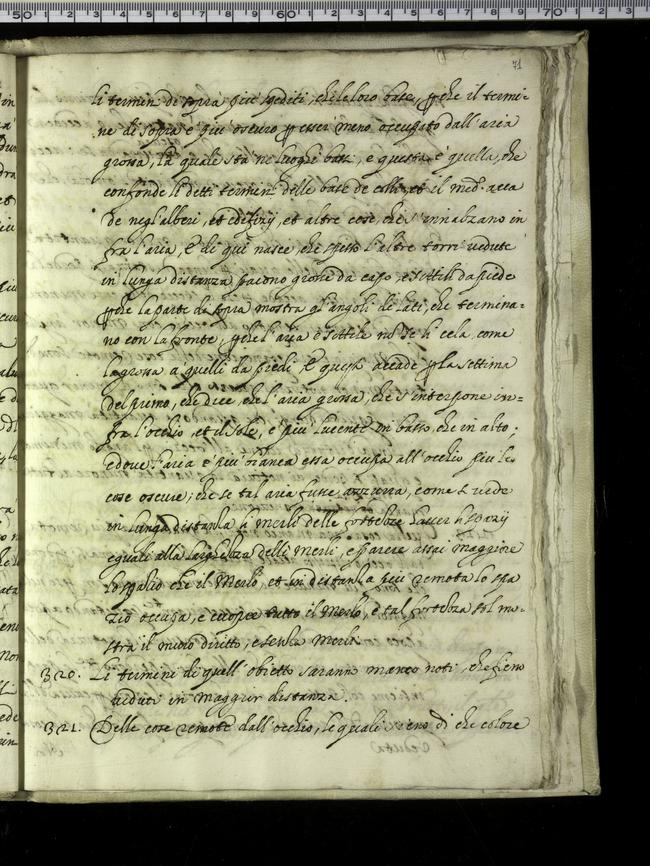 71
li termini di sopra più spediti, che le loro base, p̱che il termi-
ne di sopra è più oscuro p̱ esser meno occupato dall'aria
grossa, la quale sta ne luoghi bassi, e questa è quella, che
confonde li detti termini delle base de colli, et il med.º acca
de negl'alberi, et edifizij, et altre cose, che s'innalzano in
fra l'aria, e di qui nasce, che spesso l'altre torri vedute
in lunga distanza paiono grosse da capo, e sottili da piede
p̱che la parte di sopra mostra gl'angoli de lati, che termina-
no con la fronte, p̱che l'aria sottile nõ te li cela, come
la grossa a quelli da piedi, e questo accade p̱ la settima
del primo, che dice, che l'aria grossa, che s'interpone in-
fra l'occhio, et il sole, è più lucente in basso, che in alto;
e dove l'aria è più bianca essa occupa all'occhio più le
cose oscure; che se tal aria fusse azzurra, come si vede
in lunga distanza li merli delle fortezze haver li spazij
equali alla larghezza delli merli, e parere assai maggiore
lo spazio che il Merlo, et in distanza più remota lo spa
zio occupa, e cuopre tutto il Merlo, e tal fortezza sol mo-
stra il muro diritto, e senza Merli.
320. Li termini di quell'obietto saranno manco noti, che fieno
veduti in maggior distanza.
321. Delle cose remote dall'occhio, le quali sieno di che colore